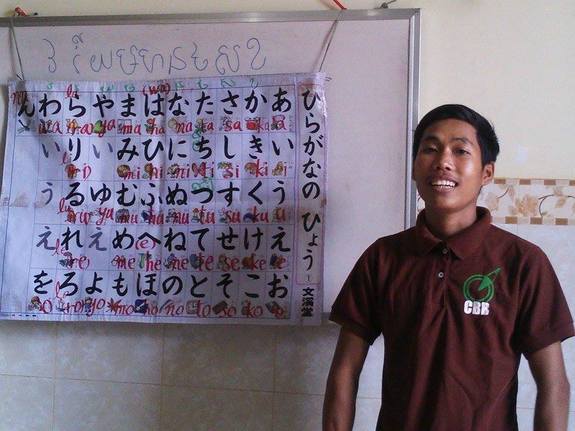 ひらがなの ひょう
文溪堂
あいうえお
a i u e o
かきくけこ
ka ki ku ke ko
さしすせそ
sa si su se so
たちつてと
ta
なにぬねの
na ni nu ne no
はひふへほ
(wa) ha hi hu (e) he ho
まみむめも
ma mi mu me mo
やいゆえよ
ya yu yo
らりるれろ
la ra li ri lu ru le re lo ro
わいうえを
wa o
ん
CBB